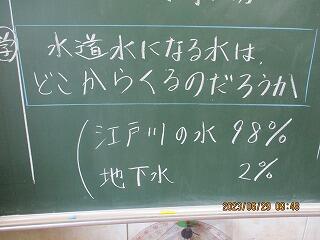 学
水道水になる水は、
どこからくるのだろうか
江戸川の水 98%
地下水 2%
2023/06/29 08:48